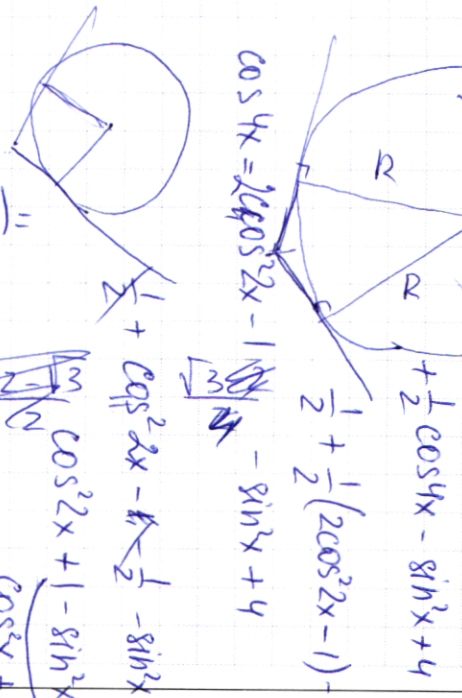 R
R
+ 1/2 cos4x - sin²x + 4
1/2 + 1/2 (2cos²2x - 1) -
- sin²x + 4
cos 4x = 2cos²2x - 1
√3
1/2 + cos²2x - 1/2 - sin²x
cos²2x + 1 - sin²x
cos²x +